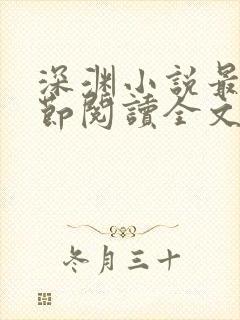 深渊小说最
節閱讀全文
冬月三十